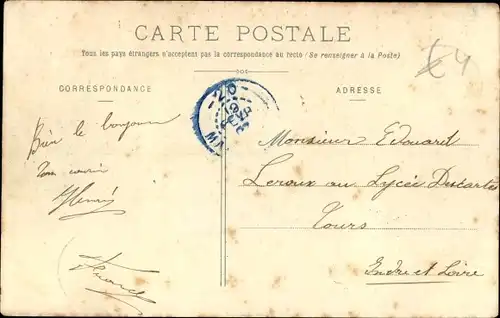 CARTE POSTALE
Tous les pays étrangers n'acceptent pas la correspondance au recto (Se renseigner à la Poste)
CORRESPONDANCE
ADRESSE
20
19
Bien le bonjour
Ton ami
Henri
Monsieur Edouard
Leroux au Lycée Descartes
Tours
Indre et Loire
£4